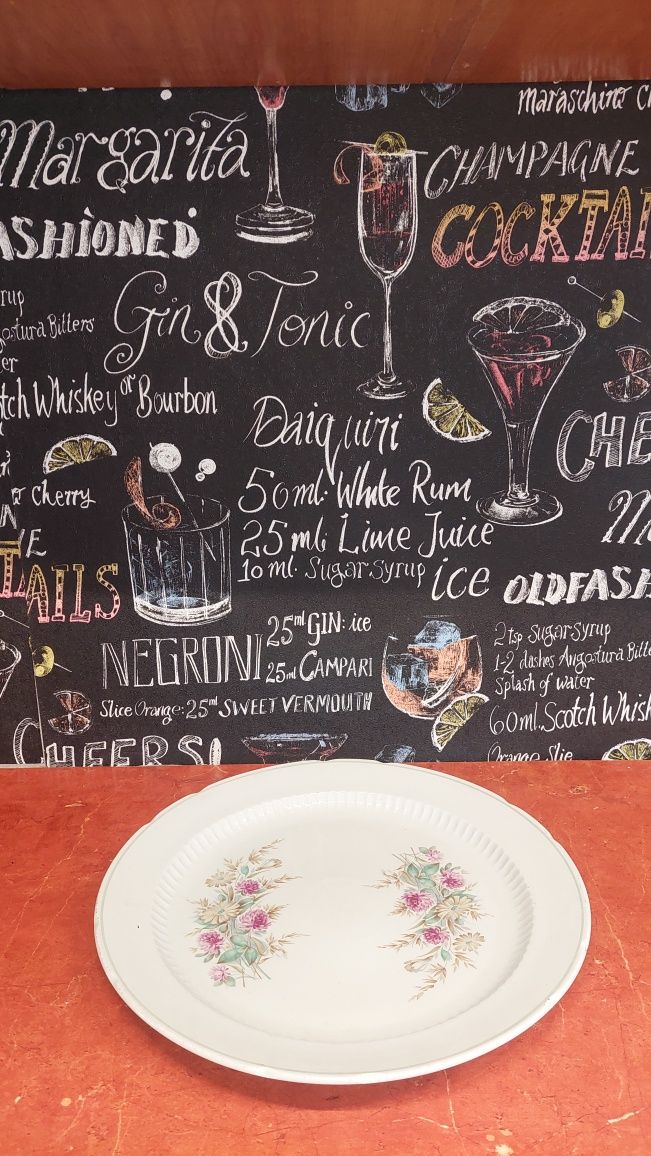 maraschino
Margarita
CHAMPAGNE
COCKTAI
ASHIONED
Gin & Tonic
rup
gostura Bitters
er
tch Whiskey or Bourbon
Daiquiri
50ml White Rum
25ml Lime Juice
10 ml. Sugar syrup ice
CHE
cherry
TAILS
OLDFASH
NEGRONI
25ml GIN: ice
25ml CAMPARI
Slice Orange: 25ml SWEET VERMOUTH
2tsp sugar syrup
1-2 dashes Angostura Bitte
Splash of water
60ml. Scotch Whisk
Orange Slie
CHEERS!